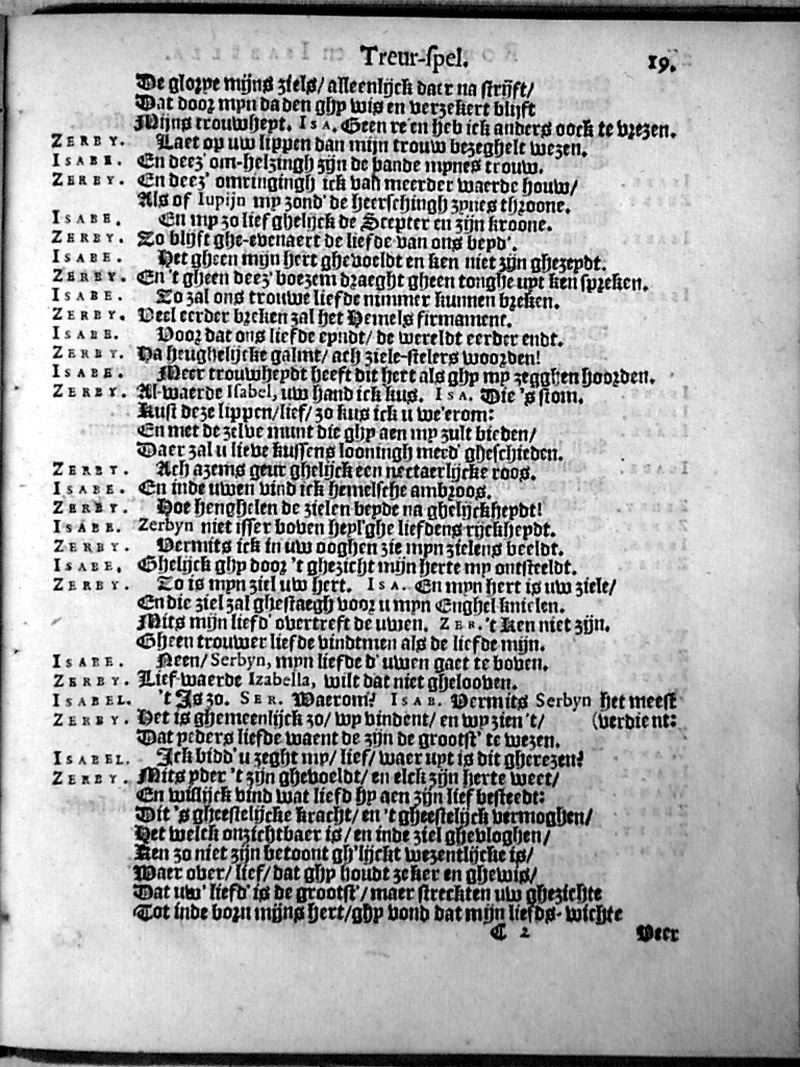 Treur-spel. 19.
De glorye mijns ziels/ alleenlijck daer na strijft/
Dat door myn daden ghy wis en verzekert blijft
Mijns trouwheyt. ISA. Geen re'en heb ick anders oock te vrezen.
ZERBY. Laet op uw lippen dan mijn trouw bezeghelt wezen.
ISABE. En deez' om-helzingh zijn de bande mynes trouw.
ZERBY. En deez' omringingh ick van meerder waerde houw/
Als of Iupijn my zond' de heerschingh zynes throone.
ISABE. En my zo lief ghelijck de Scepter en zijn kroone.
ZERBY. Zo blijft ghe-evenaert de liefde van ons beyd'.
ISABE. Het gheen mijn hert ghevoeldt en ken niet zijn ghezeydt.
ZERBY. En 't gheen deez' boezem draeght gheen tonghe uyt ken spreken.
ISABE. Zo zal ons trouwe liefde nimmer kunnen breken.
ZERBY. Veel eerder breken zal het Hemels firmament.
ISABE. Voor dat ons liefde eyndt/ de wereldt eerder endt.
ZERBY. Ha heughelijcke galmt/ ach ziele-stelers woorden!
ISABE. Meer trouwheydt heeft dit hert als ghy my zegghen hoorden.
ZERBY. Al-waerde Isabel, uw hand ick kus. ISA. Die 's stom.
Kust deze lippen/lief/ zo kus ick u we'erom:
En met de zelve munt die ghy aen my zult bieden/
Daer zal u lieve kussens looningh med' gheschieden.
ZERBY. Ach azems geur ghelijck een nectaerlijcke roos.
ISABE. En inde uwen vind ick hemelsche ambroos.
ZERBY. Hoe henghelen de zielen beyde na ghelijckheydt!
ISABE. Zerbyn niet isser boven heyl'ghe liefdens rijckheydt.
ZERBY. Vermits ick in uw ooghen zie myn zielens beeldt.
ISABE. Ghelijck ghy door 't ghezicht mijn herte my ontsteeldt.
ZERBY. Zo is myn ziel uw hert. ISA. En myn hert is uw ziele/
En die ziel zal ghestaegh voor u myn Enghel knielen.
Mits mijn liefd' overtreft de uwen. ZER. 't Ken niet zijn.
Gheen trouwer liefde vindtmen als de liefde mijn.
ISABE. Neen/ Serbyn, myn liefde d' uwen gaet te boven.
ZERBY. Lief-waerde Izabella, wilt dat niet ghelooven.
ISABEL. 't Is zo. SER. Waerom? ISAB. Vermits Serbyn het meest
ZERBY. Het is ghemeenlijck zo/ wy vindent/ en wy zien 't/ (verdient:
Dat yeders liefde waent de zijn de grootst' te wezen.
ISABEL. Ick bidd' u zeght my/ lief/ waer uyt is dit gherezen?
ZERBY. Mits yder 't zijn ghevoeldt/ en elck zijn herte weet/
En wislijck vind wat liefd hy aen zijn lief besteedt:
Dit 's gheestelijcke kracht/ en 't gheestelijck vermoghen/
Het welck onzichtbaer is/ en inde ziel ghevloghen/
Ken zo niet zijn betoont gh'lijckt wezentlijcke is/
Waer over/ lief/ dat ghy houdt zeker en ghewis/
Dat uw' liefd' is de grootst'/ maer streckten uw ghezichte
Tot inde born mijns hert/ghy vond dat mijn liefds-wichte
C 2 Veer